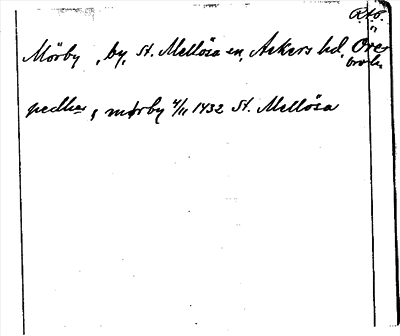 Mörby , by, St. Mellösa sn, Askers hd, Öre-
bro län
pedhar j mørby 4/11 1432 St. Mellösa